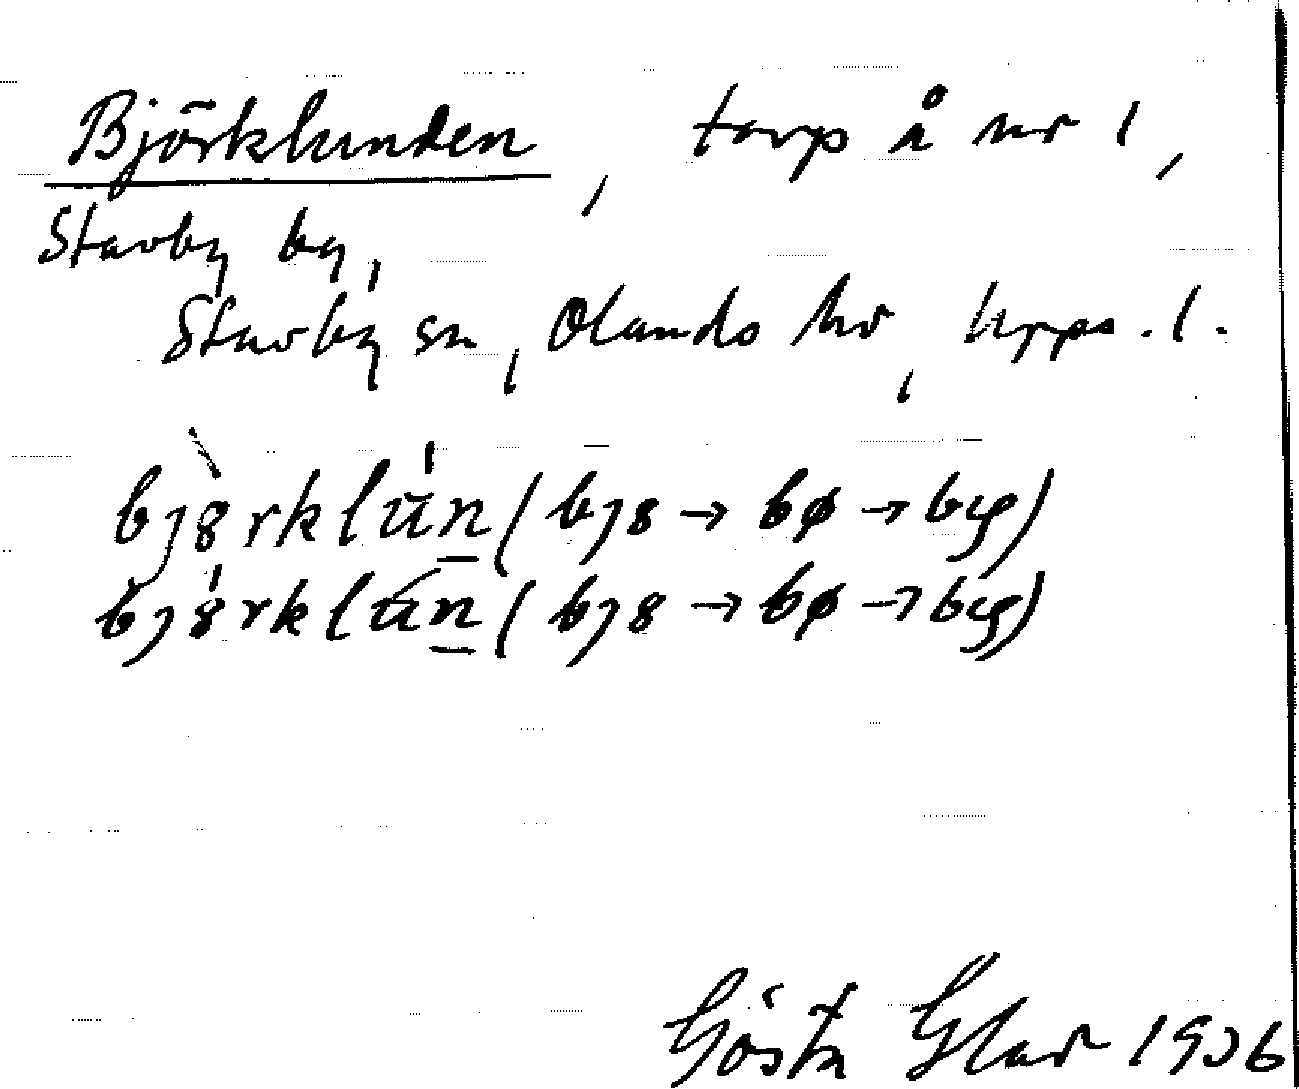 Björklunden, torp å nr 1,
Stavby by,
Stavby sn, Olands hd, Upps. l.
bjȣ̀rklún̲ (bjȣ → bø → bꭒ)
bjȣ́rklun̲ (bjȣ → bø → bꭒ)
Gösta Glad 1936